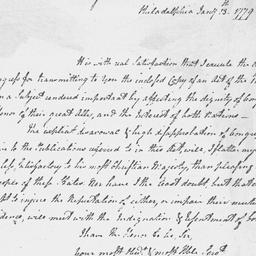 Philadelphia Jany. 13th. 1779
It is with real Satisfaction that I execute the
for transmitting to you the inclosed Copy of an Act of the
on a Subject rendered important by affecting the dignity of
Honor of their great Ally, and the Interest of both Nations
The explicit disavowal & high disapprobation of Congress
to the Publications referred to in this Act, will, I flatter my
less satisfactory to his most Christian Majesty, than pleasing
people of these States. Nor have I the least doubt, but that
to injure the Reputation of either, or impair their mutual
will meet with the Indignation & Resentment of both
I have the Honor to be Sir,
Your most Obedt. & most Hble Servt.